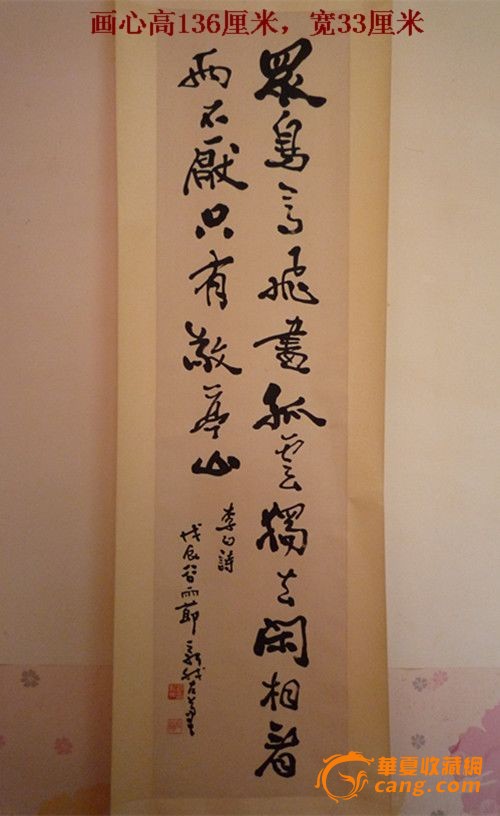 画心高136厘米，宽33厘米
眾鳥高飛盡孤雲獨去閑相看
兩不厭只有敬亭山
李白詩
戊辰谷雨節
華夏收藏網
cang.com